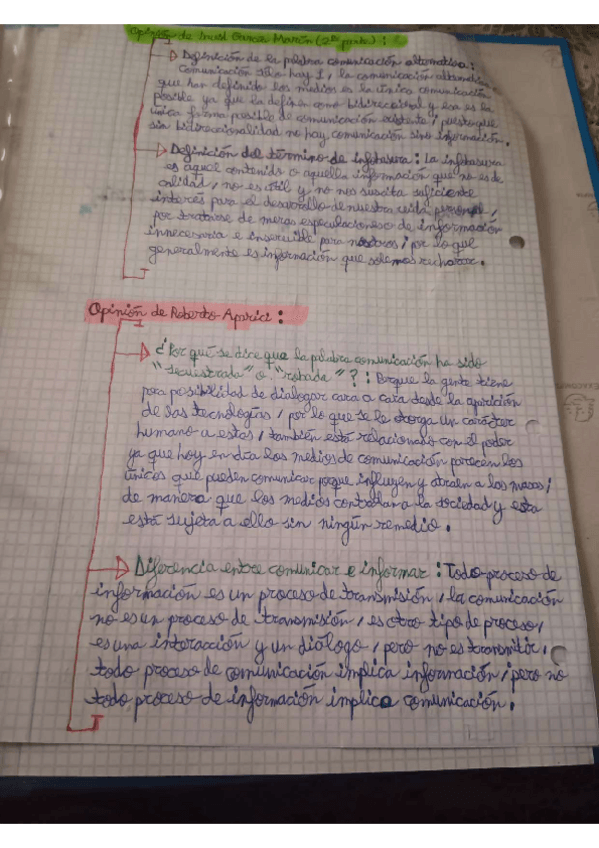 Opinión de García Marín (2ª parte):
Definición de la palabra comunicación alternativa:
Comunicación sólo hay 1, la comunicación alternativa
que han definido los medios es la única comunicación
posible ya que la definen como bidireccional y esa es la
única forma posible de comunicación existente, puesto que
sin bidireccionalidad no hay comunicación sino información.
Definición del término de infobasura: la infobasura
es aquel contenido o aquella información que no es de
calidad, no es útil y no nos suscita suficiente
interés para el desarrollo de nuestra vida personal,
por tratarse de meras especulaciones o de información
innecesaria e inservible para nosotros, por lo que
generalmente es información que solemos rechazar.
Opinión de Roberto Aparici:
¿Por qué se dice que la palabra comunicación ha sido
"secuestrada" o "robada"?: Porque la gente tiene
poca posibilidad de dialogar cara a cara desde la aparición
de las tecnologías, por lo que se le otorga un carácter
humano a estas, también está relacionado con el poder
ya que hoy en día los medios de comunicación parecen los
únicos que pueden comunicar porque influyen y atraen a las masas,
de manera que los medios controlan a la sociedad y esta
está sujeta a ello sin ningún remedio.
Diferencia entre comunicar e informar: Todo proceso de
información es un proceso de transmisión, la comunicación
no es un proceso de transmisión, es otro tipo de proceso,
es una interacción y un diálogo, pero no es transmitir,
todo proceso de comunicación implica información, pero no
todo proceso de información implica comunicación.